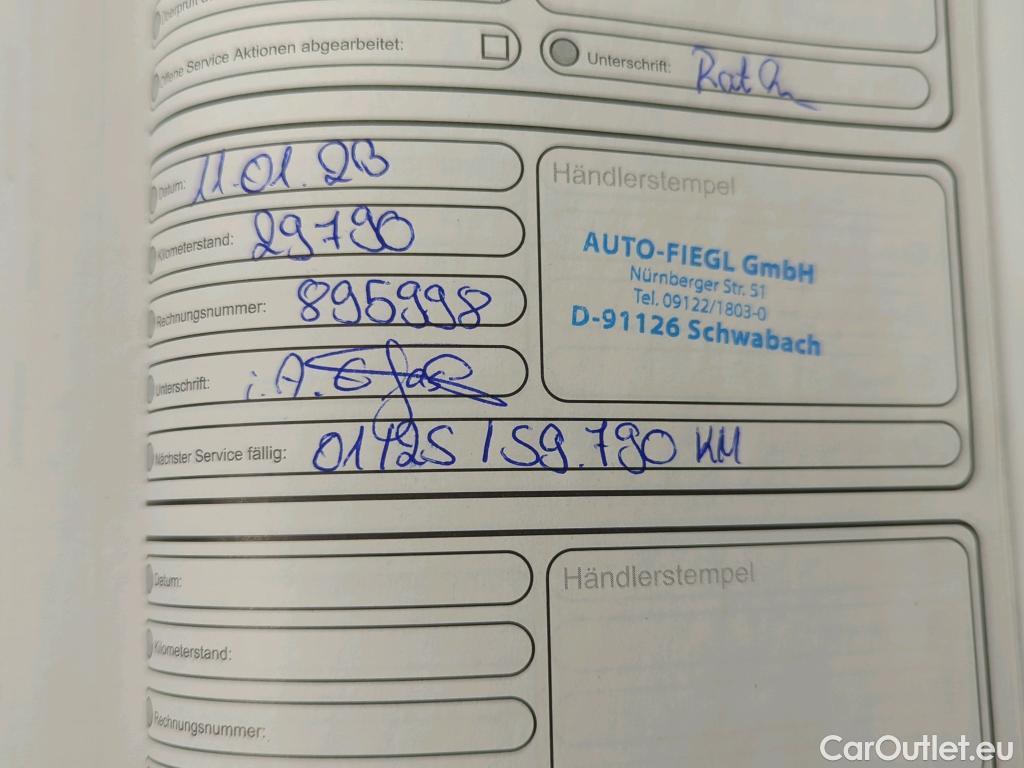 Überprüft
Offene Service Aktionen abgearbeitet:
Unterschrift: Rath
Datum: 11.01.23
Kilometerstand: 29790
Rechnungsnummer: 895998
Unterschrift: i.A.
Nächster Service fällig: 01/25 / 59.790 KM
Händlerstempel
AUTO-FIEGL GmbH
Nürnberger Str. 51
Tel. 09122/1803-0
D-91126 Schwabach
Datum:
Kilometerstand:
Rechnungsnummer:
Händlerstempel
CarOutlet.eu